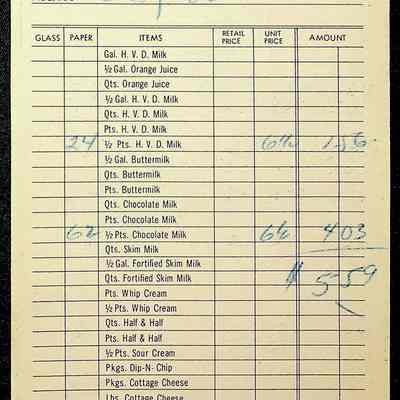 GLASS PAPER ITEMS RETAIL PRICE UNIT PRICE AMOUNT
Gal. H. V. D. Milk
½ Gal. Orange Juice
Qts. Orange Juice
½ Gal. H. V. D. Milk
Qts. H. V. D. Milk
Pts. H. V. D. Milk
24 ½ Pts. H. V. D. Milk 6½ 1 56
½ Gal. Buttermilk
Qts. Buttermilk
Pts. Buttermilk
Qts. Chocolate Milk
Pts. Chocolate Milk
62 ½ Pts. Chocolate Milk 6½ 4 03
Qts. Skim Milk
½ Gal. Fortified Skim Milk
Qts. Fortified Skim Milk $ 5 59
Pts. Whip Cream
½ Pts. Whip Cream
Qts. Half & Half
Pts. Half & Half
½ Pts. Sour Cream
Pkgs. Dip-N- Chip
Pkgs. Cottage Cheese
Lbs. Cottage Cheese